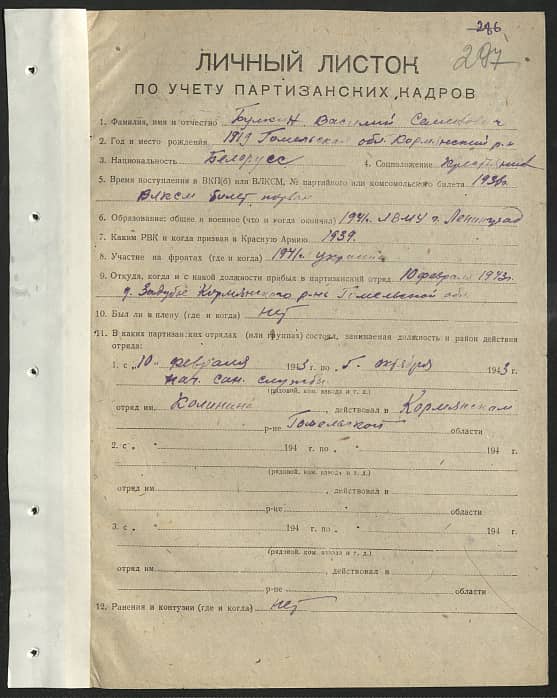 286
287
ЛИЧНЫЙ ЛИСТОК
ПО УЧЕТУ ПАРТИЗАНСКИХ КАДРОВ
1. Фамилия, имя и отчество Булкин Василий
2. Год и место рождения 1919 Гомельская обл. Кормянский р-н
3. Национальность Белорусс 4. Соцположение
5. Время поступления в ВКП(б) или ВЛКСМ, № партийного или комсомольского билета 1938г
ВЛКСМ билет
6. Образование: общее и военное (что и когда окончил) 1941г. ЛВМУ г. Ленинград
7. Каким РВК и когда призван в Красную Армию 1939.
8. Участие на фронтах (где и когда) 1941г.
9. Откуда, когда и с какой должности прибыл в партизанский отряд 10 февраля 1943г.
д. Кормянского р-на Гомельской обл.
10. Был ли в плену (где и когда) нет
11. В каких партизанских отрядах (или группах) состоял, занимаемая должность и район действия
отряда:
1. с „10„ февраля 1943 г. по „5„ октября 1943 г.
нач. сан. службы
(рядовой, ком. взвода и т. д.)
отряд им. Калинина, действовал в Кормянском
р-не Гомельской области
2. с „ „ 194 г. по „ „ 194 г.
(рядовой, ком. взвода и т. д.)
отряд им., действовал в
р-не области
3. с „ „ 194 г. по „ „ 194 г.
(рядовой, ком. взвода и т. д.)
отряд им., действовал в
р-не области
12. Ранения и контузии (где и когда) нет